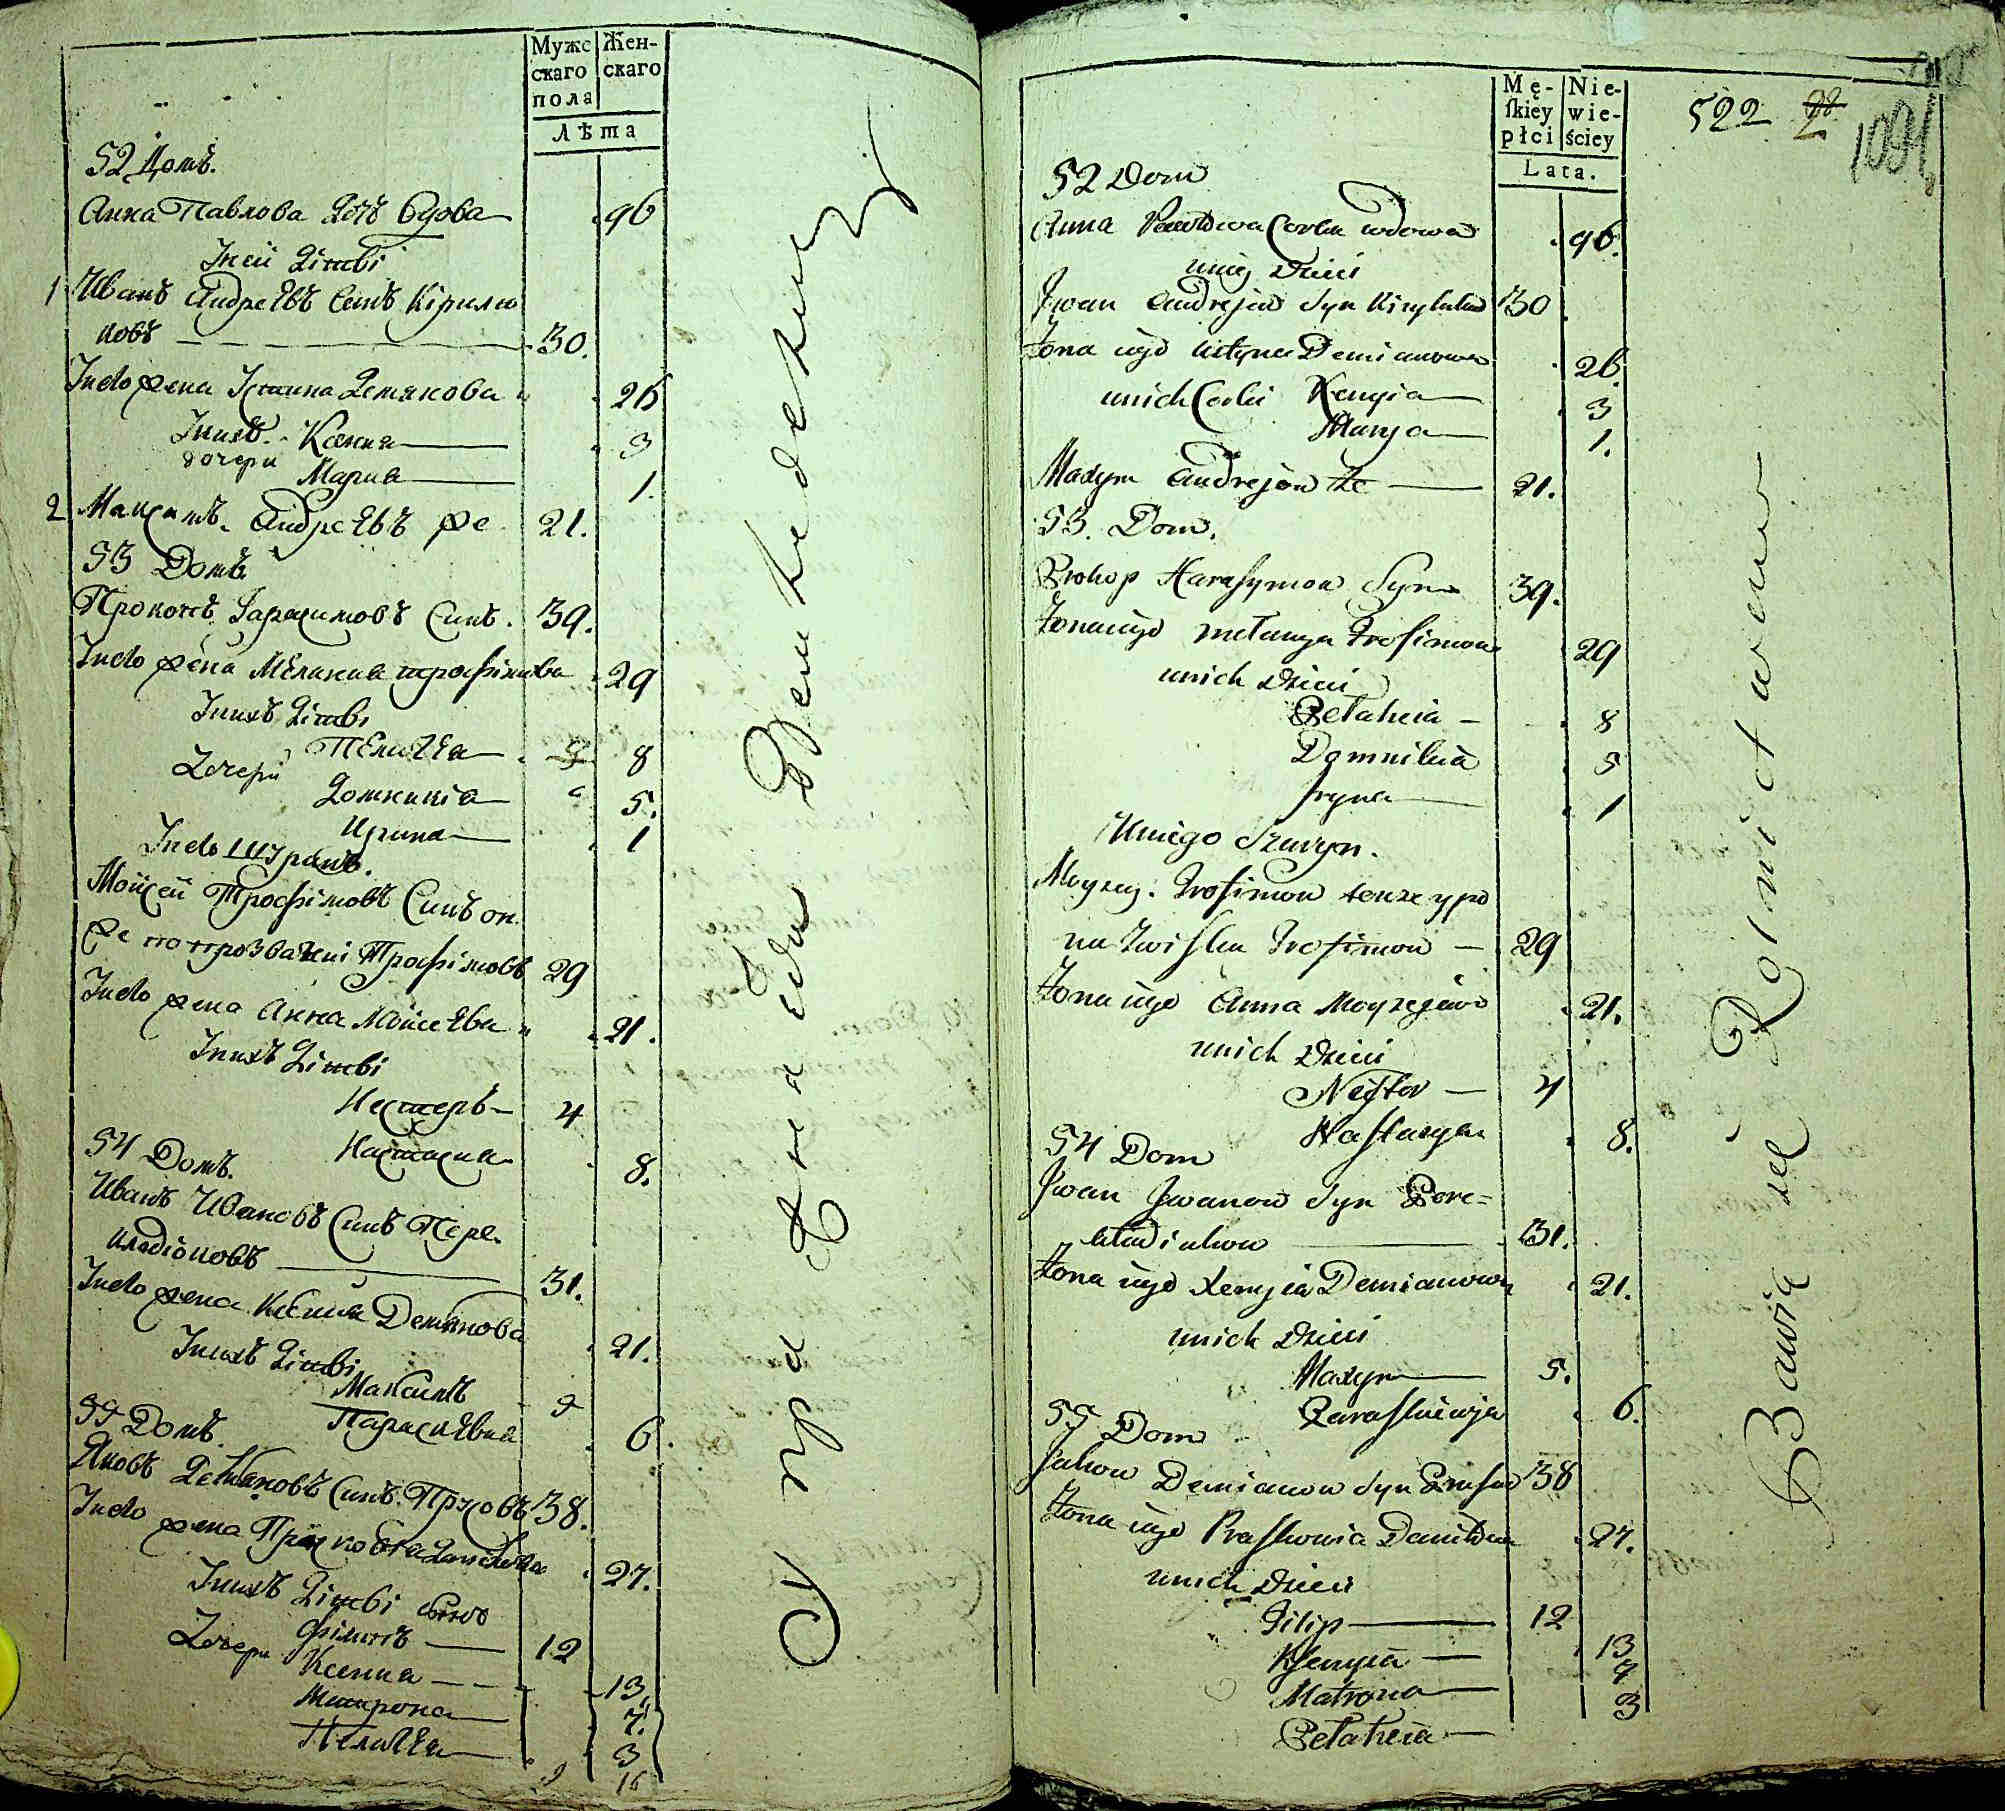 Мужс
скаго
пола
Жен-
скаго
Лѣта
52 Домъ.
Анна Павлова дочь вдова 96
Унеи Дiтвi
1 Иванъ Андреѣвъ Синъ Кiрилю
ковъ 30.
Унего жена Устина Демянова 26
Унихъ Ксения 3
дочери Мария 1.
2 Максимъ Андреѣвъ же 21.
53 Домъ
Прокопъ Гарасимовъ Синъ. 39.
Унего жена Мелания трофiмова 29
Унихъ Дiтвi
Дочери Пелагѣя 8
Домникiя 5.
Ирина 1
Унего Шуринъ.
Мойсей Трофiмовъ Синъ он
же попрозванiи Трофiмовъ 29
Унего жена Анна Мойсеѣва 21.
Унихъ Дiтвi
Нестеръ 4
Настасия 8.
54 Домъ.
Иванъ Ивановъ Синъ Пере-
кладiоковъ 31.
Унего жена Ксения Демянова 21.
Унихъ Дiтвi
Максимъ 5
Параскѣвия 6.
55 Домъ.
Яковъ Демяновъ Синъ. Прусовъ 38.
Унего жена Прасковия Данилова 27.
Унихъ Дiтвi
Фiлипъ 12
Дочери Ксения 13.
Матрона 7.
Пелагѣя 3
9 16
Mę-
skiey
płci
Nie-
wie-
ściey
Lata.
522
1091
52 Dom
Anna Pawłowa Corka wdowa 96.
uniey Dzieci
Jwan Andrejow Syn Kirylukow 30
Żona iego Ustyna Demianowa 26.
unich Corki Xenyia 3
Marya 1.
Maxym Andrejow że 21.
53. Dom.
Prokop Harasymow Syn 39.
Żona iego Mełanya Trofimowa 29
unich Dzieci
Pełaheia 8
Domnikia 5
Jryna 1
Uniego Szuryn.
Moyzey Trofimow tenże ypo
nazwisku Trofimow 29
Żona iego Anna Moyzejowa 21.
unich Dzieci
Nestor 4
Nastazya 8.
54 Dom
Jwan Jwanow Syn Pere=
kładiukow 31.
Żona iego Xenyia Demianowa 21.
unich Dzieci
Maxym 5.
Paraskiewja 6.
55 Dom
Jakow Demianow Syn Prusow 38
Żona iego Praskowia Daniłowa 27.
unich Dzieci
Filip 12
Ksenyia 13
Matrona 7
Pełaheia 3